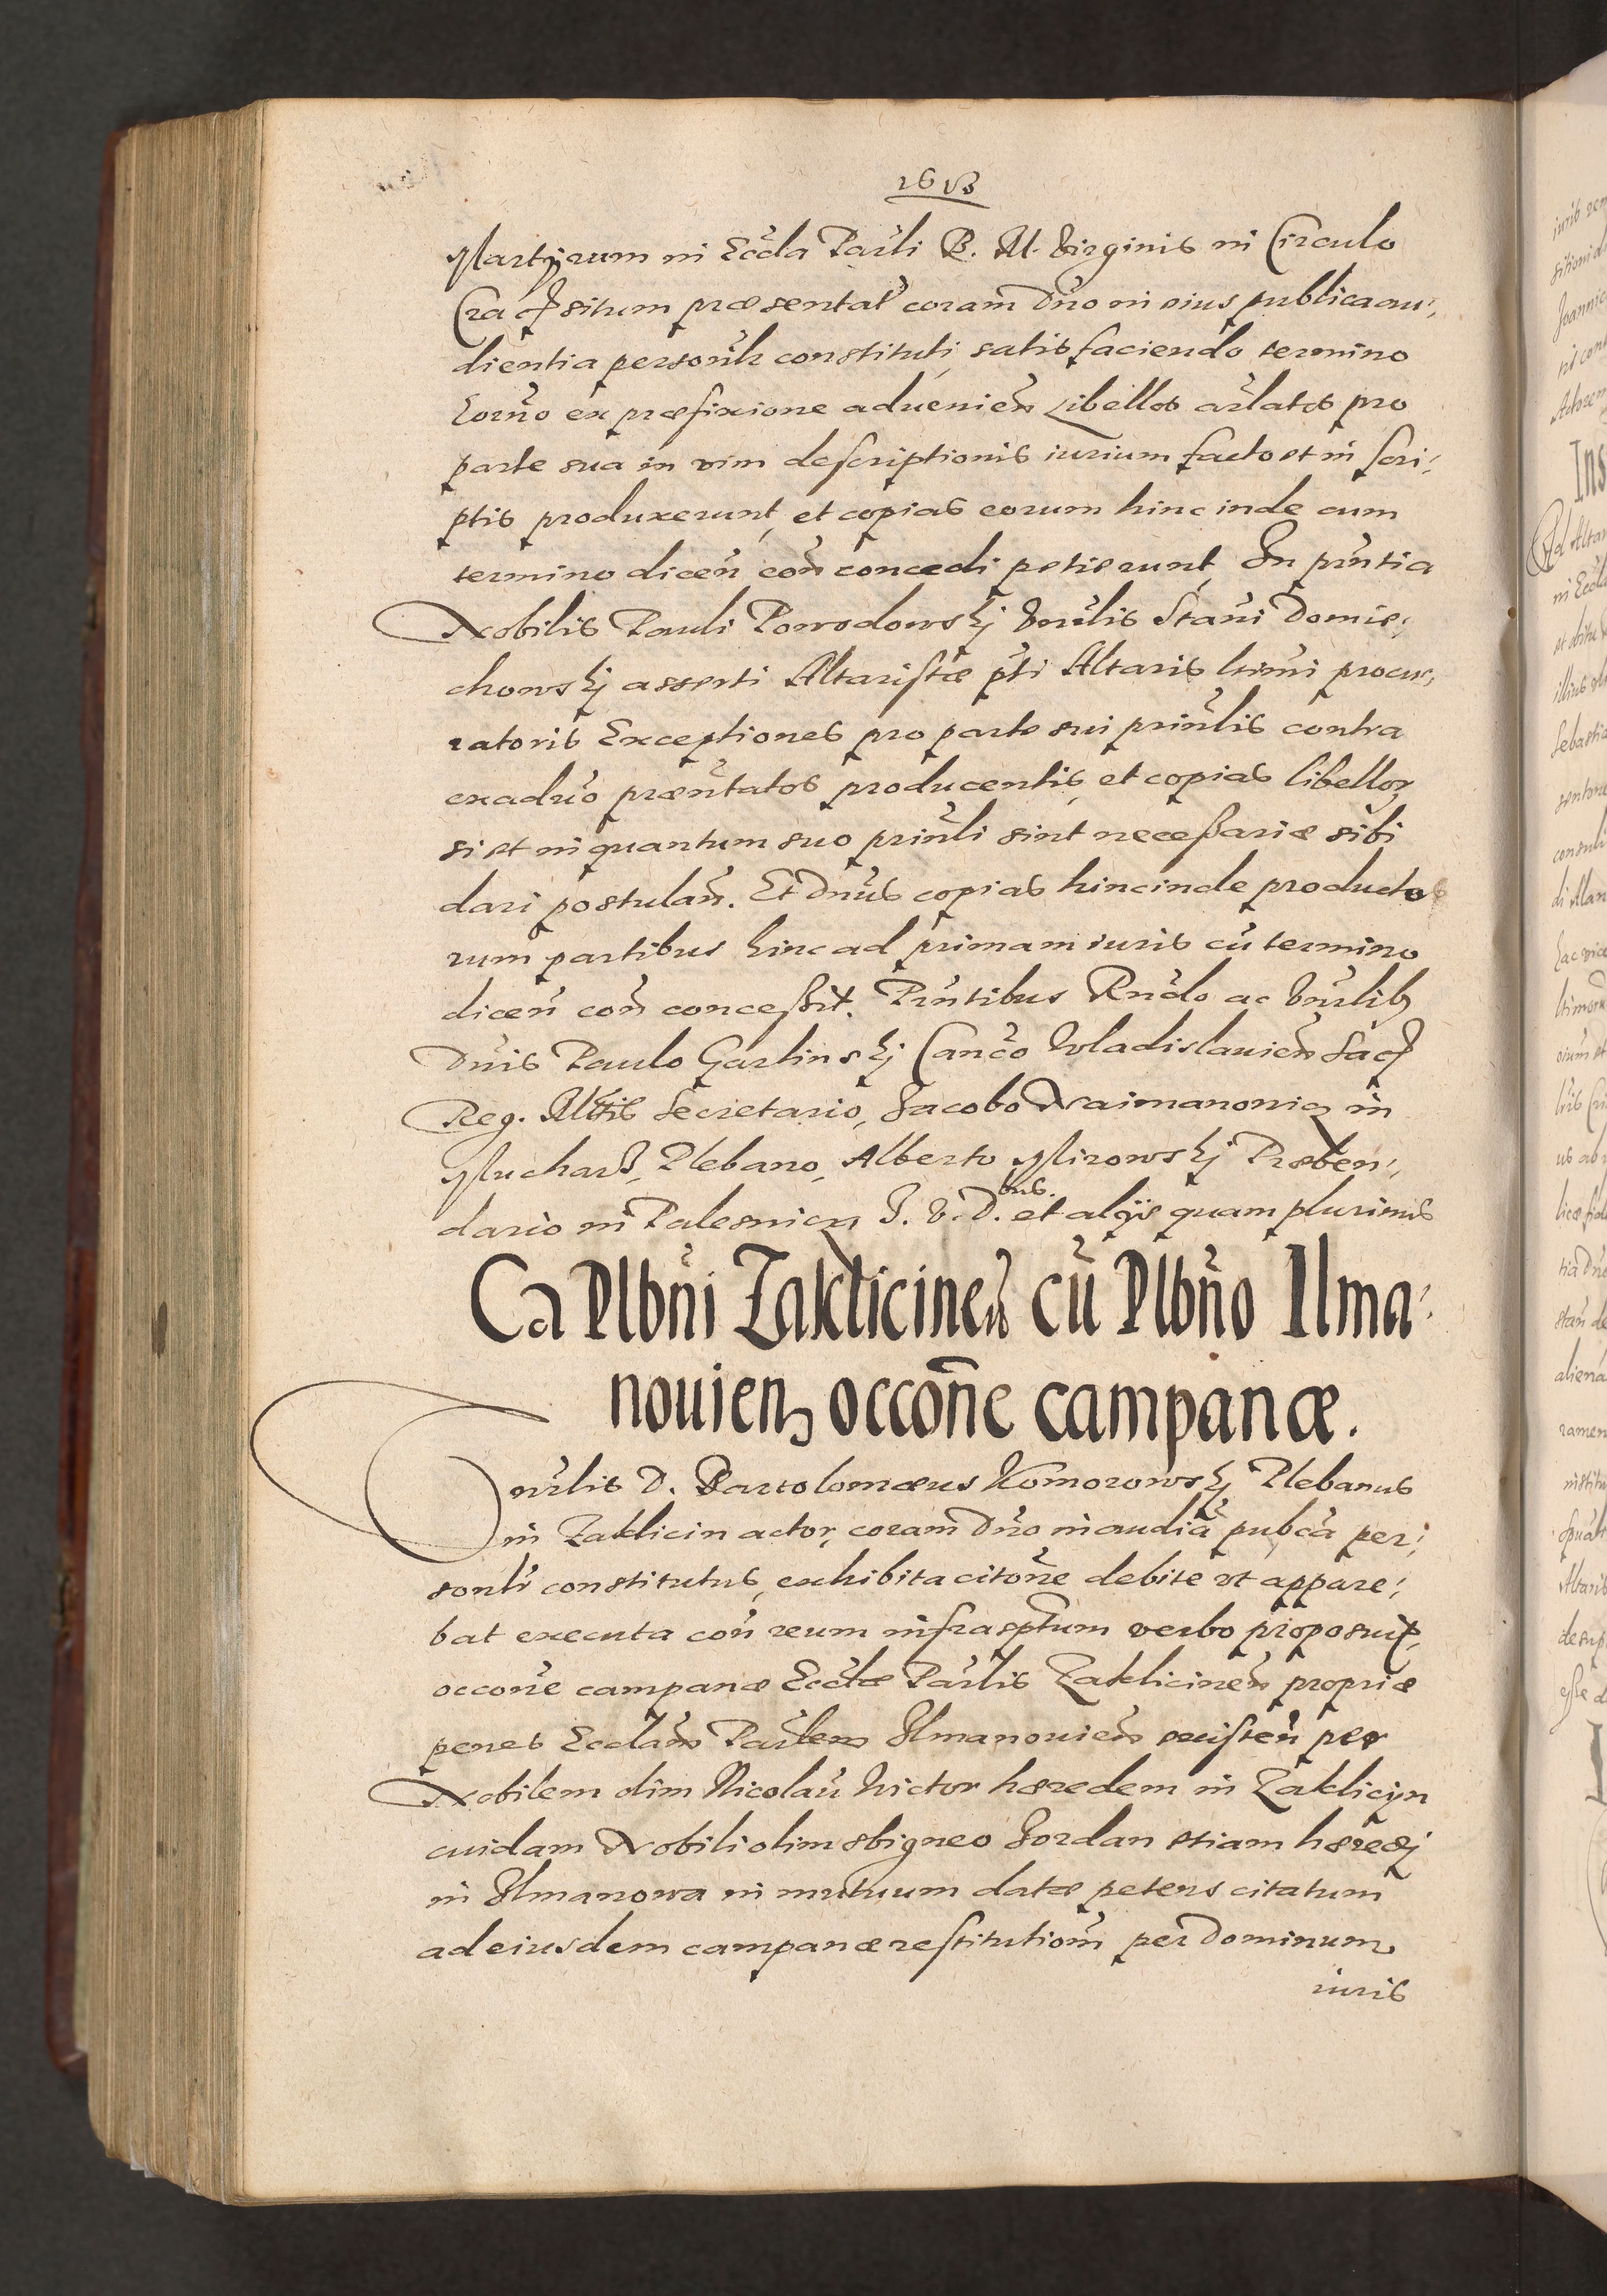 Martyrum in Eccla Parli B. M. Virginis in Circulo
Crac situm præsentat coram Dno in eius publica au,
dientia personlr constituti, satisfaciendo termino
ex præfixione aduenien Libellos arlatos pro
parte sua in vim descriptionis iurium facto et in scri,
ptis produxerunt, et copias eorum hinc inde cum
termino dicen con concedi petierunt, In pntia
Nobilis Pauli Powodowskj Vnrlis Stani Domie,
chowskj asserti Altaristæ pti Altaris ltimi procu,
ratoris Exceptiones pro parte sui prinlis contra
exaduo præntatos producentis, et copias libellor
si et in quantum suo prinli sint necessariæ sibi
dari postulan. Et Dnus copias hincinde producto
rum partibus hinc ad primam iuris cu termino
dicen con concessit. Pntibus Rndo ac Vnrlib
Dnis Paulo Garlinskj Canco Wladislauien Sac
Reg. Mttis Secretario, Jacobo Naimanowicz in
Mucharz Plebano, Alberto Mirowskj Præben,
dario in Palesnicza I. V. D. bus. et alÿs quam plurimis
Ca Plbni Zakliczinen cu Plbno Ilma,
nouien occone campanæ.
Vnrlis D. Bartolomæus Komorowskj Plebanus
in Zaklicin actor, coram Dno in audia pubca per,
sonlr constitutus, exhibita citone debite vt appare,
bat executa con reum infrasptum verbo proposuit,
occone campanæ Ecclæ Parlis Zaklicinen propriæ
penes Ecclam Parlem Ilmanouien existen per
Nobilem olim Nicolau Wictor hæredem in Zaklicyn
cuidam Nobili olim Sbigneo Jordan etiam hæredj
in Ilmanowa in mutuum datæ petens citatum
ad eiusdem campanæ restitutiom per Dominum
iuris